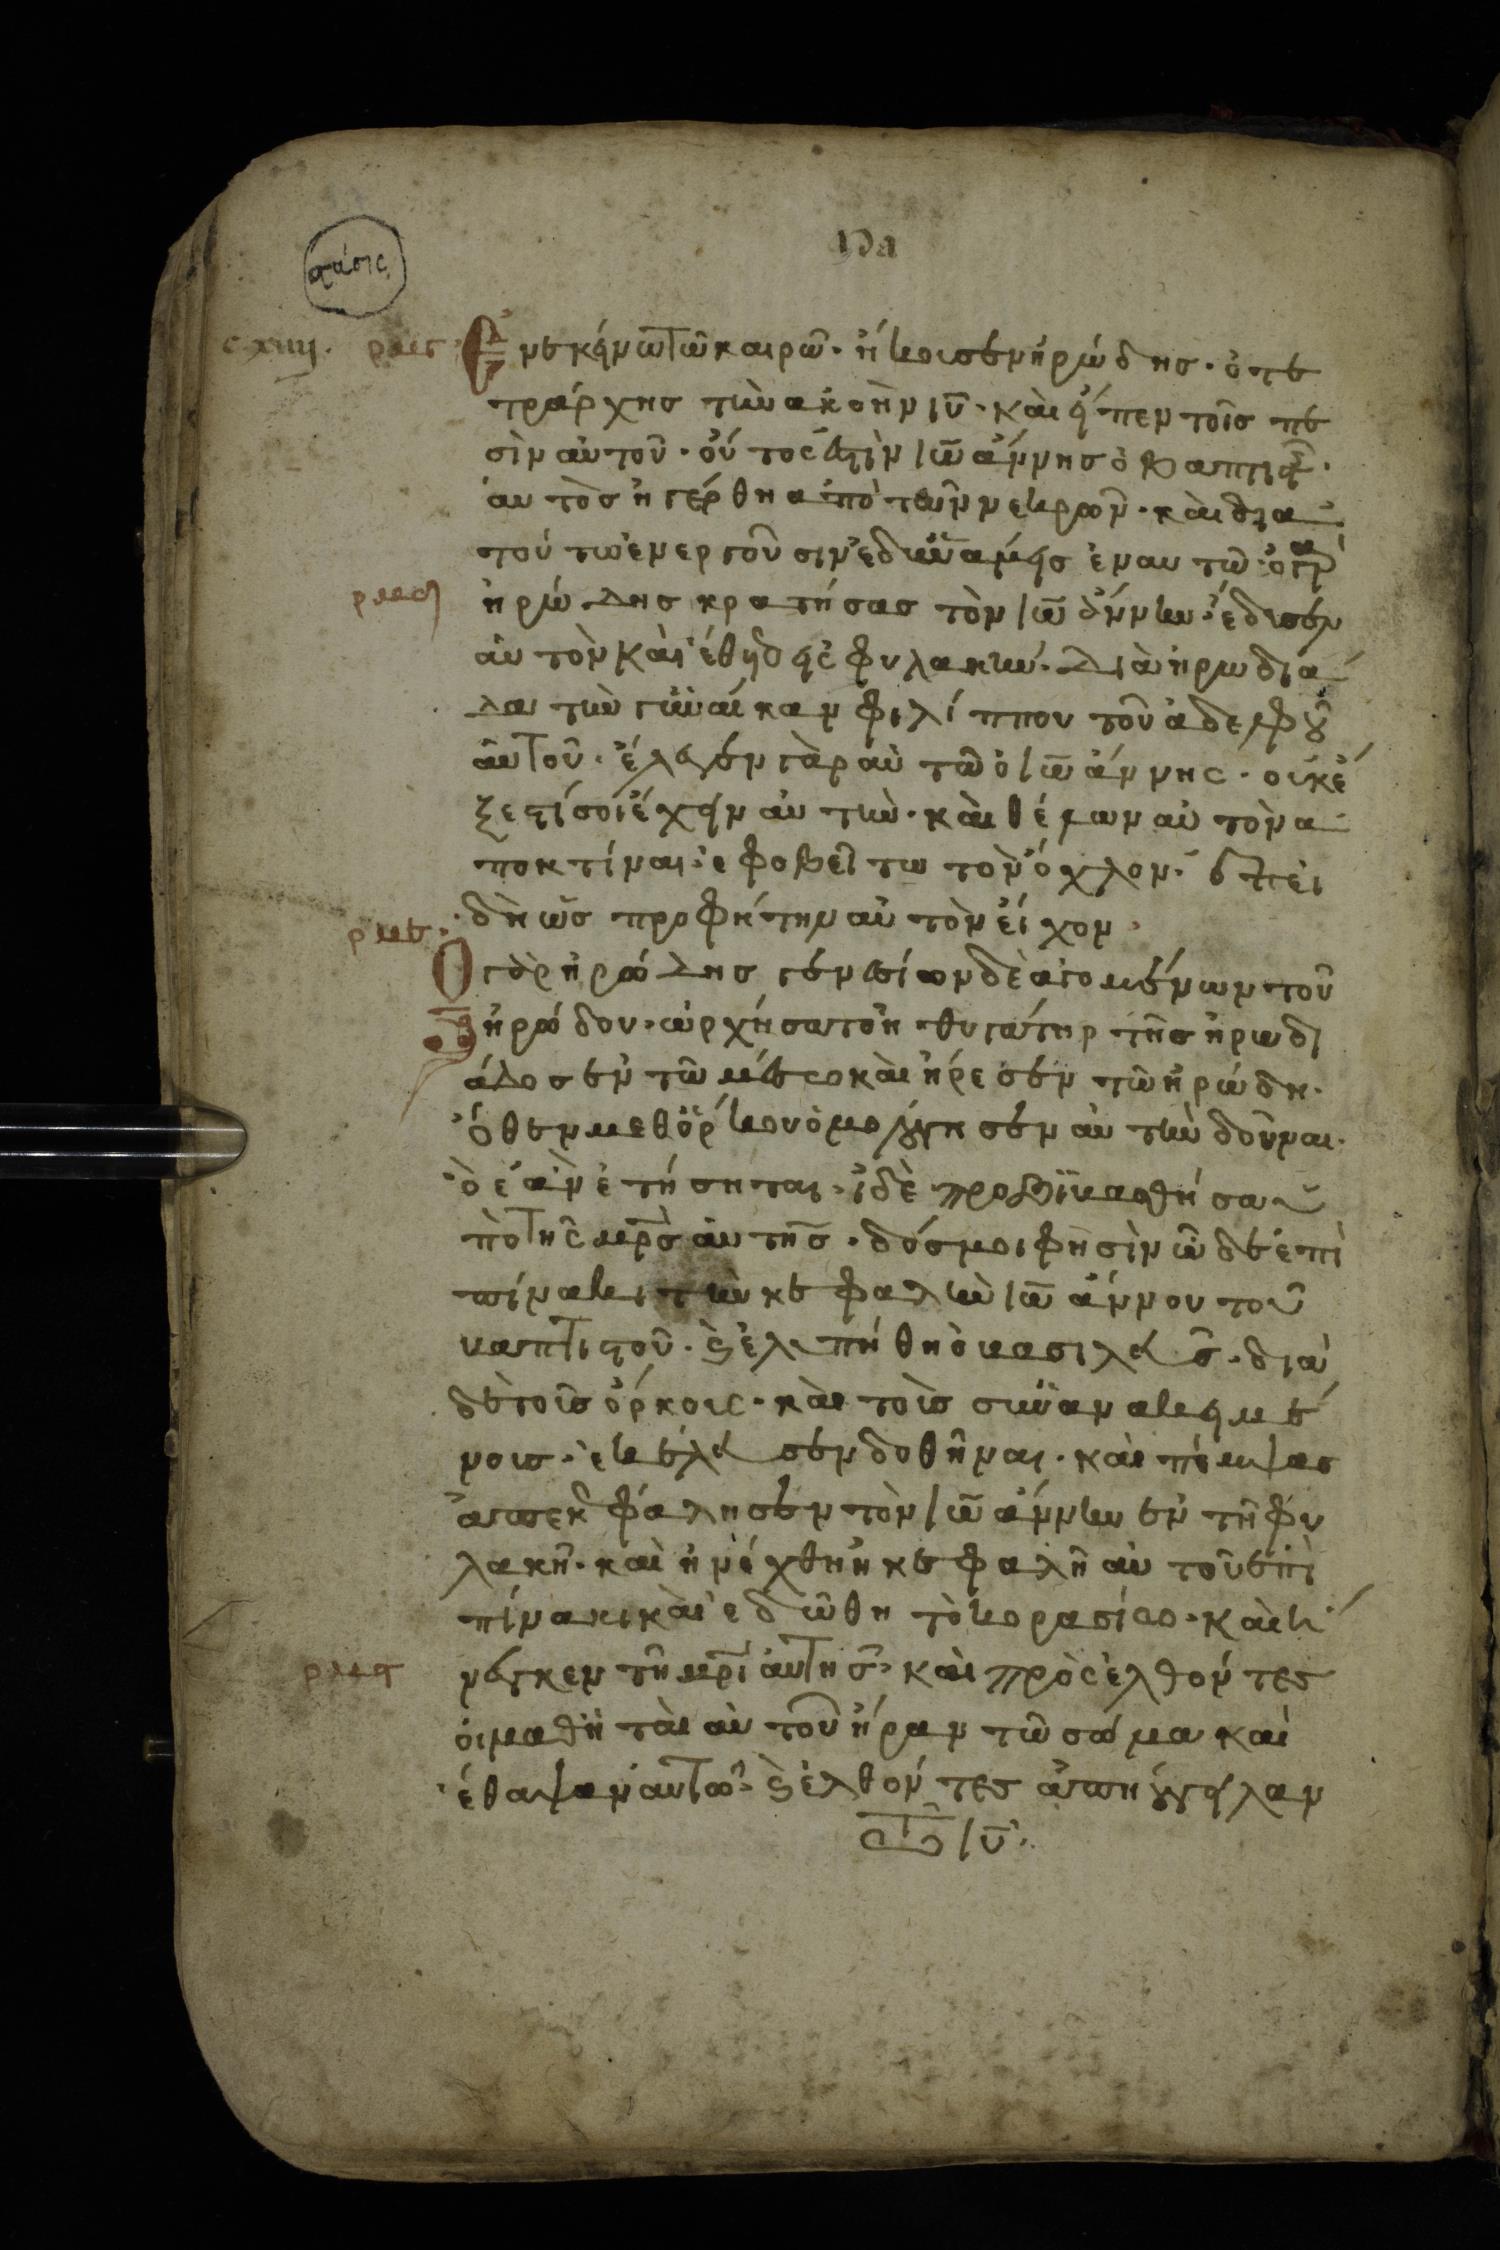 c. xiiij.
Ἐν εκείνω τῶ καιρῶ· ἤκουσεν ἡρώδης· ὁ τε
τράρχης τὴν ακοὴν ιῦ· καὶ εἴπεν τοῖσ πε
σὶν αὐτοῦ· οὗτος ἐστὶν ἰωάννησ ὁ βαπτιστ·
αυτὸσ ἠγέρθη απὸ τῶν νεκρῶν· καὶ δια
τούτω ἐνεργοῦσιν ἑ δυνάμεις ἐν αυτῶ· ὁ γὰρ
ἡρώδησ κρατήσασ τὸν ἰωάννην· ἔδισεν
αὐτὸν καὶ ἔθετο εἰς φυλακὴν· διὰ ἡρωδιά
δα τὴν γυναίκαν φιλίππου τοῦ ἀδελφοῦ
αὐτοῦ· ἔλεγεν γὰρ αὐτῶ ὁ ἰωάννης· οὐκ ἔ
ξεστί σοι ἔχειν αὐτὴν· καὶ θέλων αὐτὸν α
ποκτίναι· εφοβεῖτω τὸν ὄχλον· ἐπει
δὴ ὡσ προφήτην αὐτὸν εἶχον·
Ο γὰρ ἡρώδησ γενεσίων δὲ αγομένων τοῦ
ἡρώδου· ὠρχήσατο ἡ θυγάτηρ τῆσ ἡρωδι
άδοσ ἐν τῶ μέσω καὶ ἤρεσεν τῶ ἡρώδη·
ὅθεν μεθ ὅρκου ὁμολόγησεν αὐτὴν δοῦναι·
ὁ ἐὰν ἐτήσηται· ἰδὲ προβιβασθήσα ὑ
πὸ τῆς μρσ αὐτησ· δόσ μοι φησὶν ὧδε ἐπὶ
πίνακι τὴν κεφαλὴν ἰωάννου τοῦ
βαπτιστοῦ· καὶ ἐλυπήθη ὁ βασιλεύς· διὰ
δὲ τοῖσ ὅρκοις· καὶ τοῖσ συναναкειμέ
νοισ· ἐκέλευσεν δοθῆναι· καὶ πέμψασ
ἀπεκεφάλησεν τὸν ἰωάννην ἐν τῆ φυ
λακῆ· καὶ ἠνέχθη ἡ κεφαλὴ αὐτοῦ ἐπὶ
πίνακι καὶ εδώθη τὸ κορασίω· καὶ ἤ
νεγκεν τῆ μρι αὐτῆσ· καὶ πρὸςελθόντεσ
οἱ μαθηταὶ αὐτοῦ ἤραν τῶ σώμα καὶ
ἔθαψαν αὐτῶ· καὶ ἐλθόντεσ ἀπήγγειλαν
τῶ ιῦ·